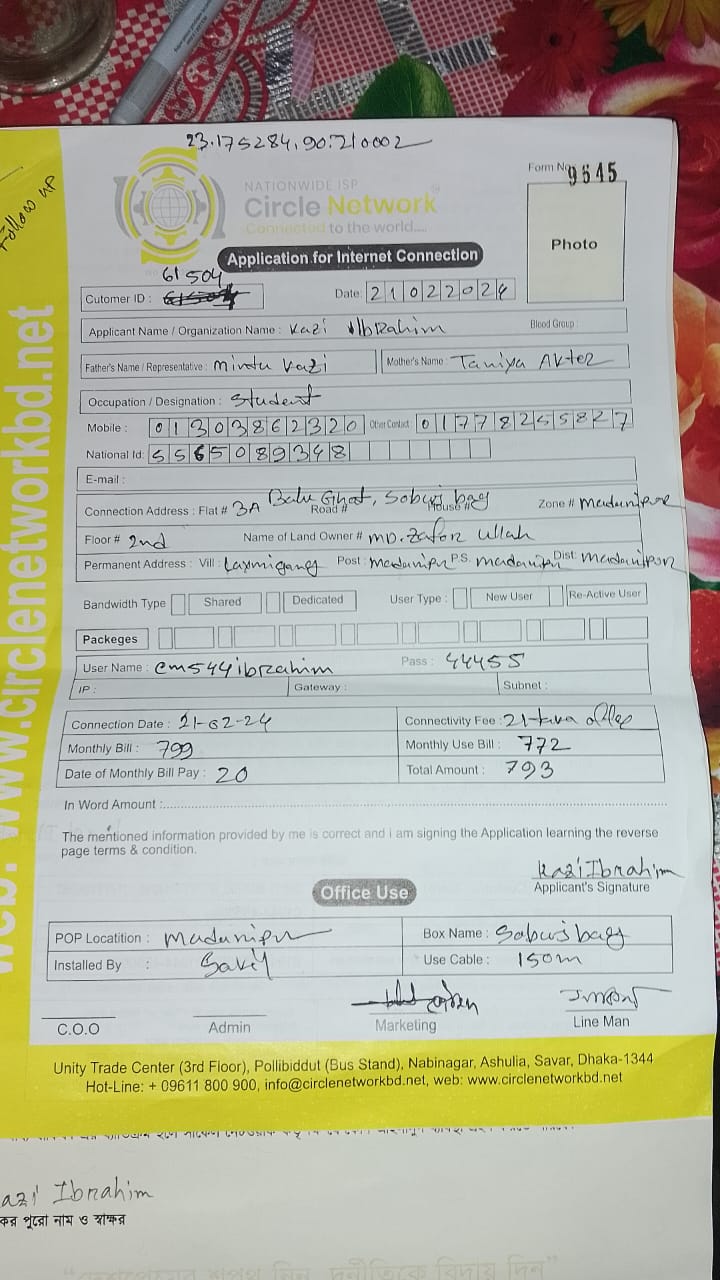 23.175284, 90.210002
Follow up
NATIONWIDE ISP
Circle Network
Connected to the world....
Form No. 9645
Photo
Application for Internet Connection
61504
Cutomer ID :
Date: 21022024
Applicant Name / Organization Name : Kazi Ibrahim Blood Group :
Father's Name / Representative : Mintu Kazi Mother's Name : Taniya Akter
Occupation / Designation : Student
Mobile : 01303862320 Other Contact : 01778255827
National Id: 5565089348
E-mail :
Connection Address : Flat # 3A Road # Balu Ghat, Sobuj bag House # Zone # Madaripur
Floor # 2nd Name of Land Owner # MD. Zafor Ullah
Permanent Address : Vill : Laxmigang Post : Madaripur P.S. Madaripur Dist: Madaripur
Bandwidth Type Shared Dedicated User Type : New User Re-Active User
Packeges
User Name : cm544ibrahim Pass : 44455
IP : Gateway : Subnet :
Connection Date : 21-02-24 Connectivity Fee : 21-taka
Monthly Bill : 799 Monthly Use Bill : 772
Date of Monthly Bill Pay : 20 Total Amount : 793
In Word Amount :
The mentioned information provided by me is correct and i am signing the Application learning the reverse
page terms & condition.
Kazi Ibrahim
Applicant's Signature
Office Use
POP Locatition : Madaripur Box Name : Sobuj bag
Installed By : Sakil Use Cable : 150m
C.O.O Admin Marketing Line Man
Unity Trade Center (3rd Floor), Pollibiddut (Bus Stand), Nabinagar, Ashulia, Savar, Dhaka-1344
Hot-Line: + 09611 800 900, info@circlenetworkbd.net, web: www.circlenetworkbd.net
web: www.circlenetworkbd.net
azi Ibrahim
পুরো নাম ও স্বাক্ষর
শপথ নিন, দুর্নীতিকে বিদায় দিন"